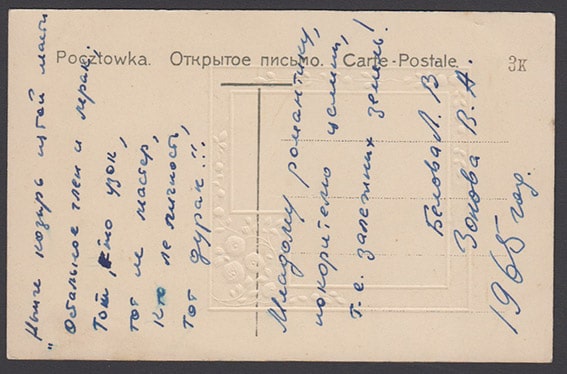 Pocztowka. Открытое письмо. Carte-Postale.
3к
„Нынче козырь масти
Остальное тлен и мрак!
Тот, кто узок,
тот не мастер,
Кто не личность,
тот дурак!!!
Младому романтику,
покорителю целины,
т.е. залежных земель!
Белова Л. В
Зонова В. А.
1965 год.